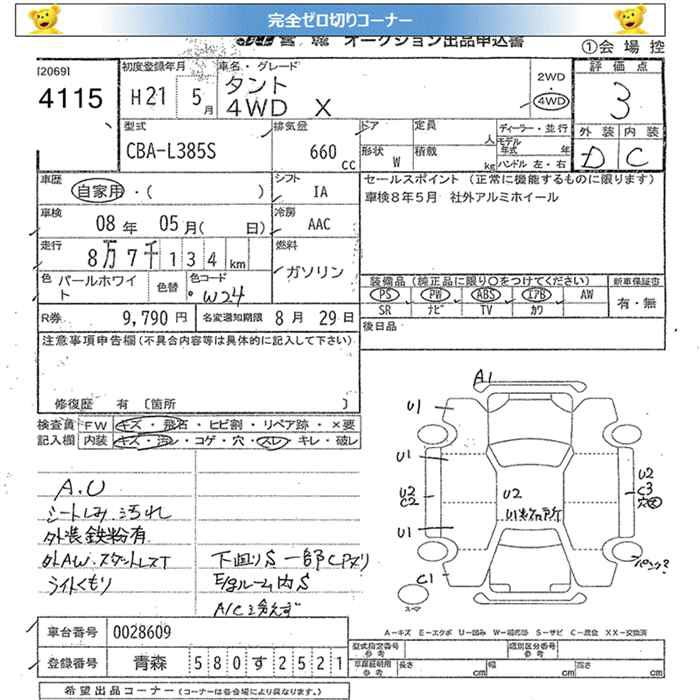 完全ゼロ切りコーナー
オークション出品申込書
①会場控
[20691
4115
初度登録年月
H21 5月
車名・グレード
タント
4WD X
2WD
4WD
評価点
3
外装 内装
D C
型式
CBA-L385S
排気量
660 cc
ドア
形状 W
定員 人
積載 kg
ディーラー・並行
モデル年式 年
ハンドル 左・右
車歴
自家用・( )
シフト
IA
車検
08年 05月( 日)
冷房
AAC
走行
8万7千134km
燃料
ガソリン
色
パールホワイト
色替
色コード
W24
R券 9,790円
名変通知期限 8月 29日
セールスポイント (正常に機能するものに限ります)
車検8年5月 社外アルミホイール
装備品(純正品に限り○をつけてください)
PS PW ABS エアB AW
SR ナビ TV カワ
新車保証書
有・無
後日品
注意事項申告欄(不具合内容等は具体的に記入して下さい)
修復歴 有 〔箇所 〕
検査員記入欄
FW キズ・飛石・ヒビ割・リペア跡・×要
内装 キズ・汚レ・コゲ・穴・スレ・キレ・破レ
A.U
シートしみ 汚れ
外装鉄粉有
外AW・スタットレスT
ライトくもり
下回りS 一部CP〆リ
E/gルーム内S
A/C冷えず
A1
U1
U1
U2
C2
U1
C1
U2
U2
C3
スーマ
パンク?
A-キズ E-エクボ U-凹み W-補修跡 S-サビ C-腐食 XX-交換済
車台番号 0028609
登録番号 青森 580す2521
型式指定番号 参考
類別区分番号 参考
車庫証明用 参考
長さ cm
幅 cm
高さ cm
希望出品コーナー(コーナーは各会場により異なります。)